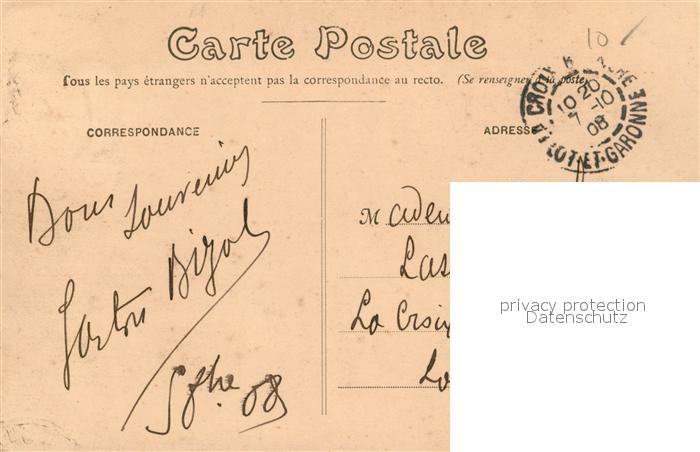 10
Carte Postale
Tous les pays étrangers n'acceptent pas la correspondance au recto. (Se renseigner à la poste)
LA CROIX B CHE
10 20
7 -10
08
LOT-ET-GARONNE
CORRESPONDANCE
ADRESSE
Bons Souvenirs
Gaston
8bre 08
M
Las
La Croix
Lo
privacy protection
Datenschutz